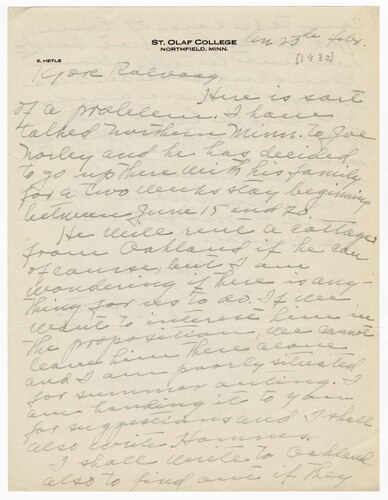 ST. OLAF COLLEGE
NORTHFIELD, MINN.
E. HETLE
23de Febr.
[1930]
Kjære Rølvaag
Here is sort
of a problem. I have
talked Northern Minn. to Joe
Norley and he has decided
to go up there with his family
for a two weeks stay beginning
between June 15 and 20.
He will rent a cottage
from Oakland if he can
of course, but I am
wondering if there is any-
thing for us to do. If we
want to interest him in
the proposition, we cannot
leave him there alone
and I am poorly situated
for summer outing. I
am handing it to you
for suggestions and I shall
also write Hommes.
I shall write to Oakland
also to find out if they